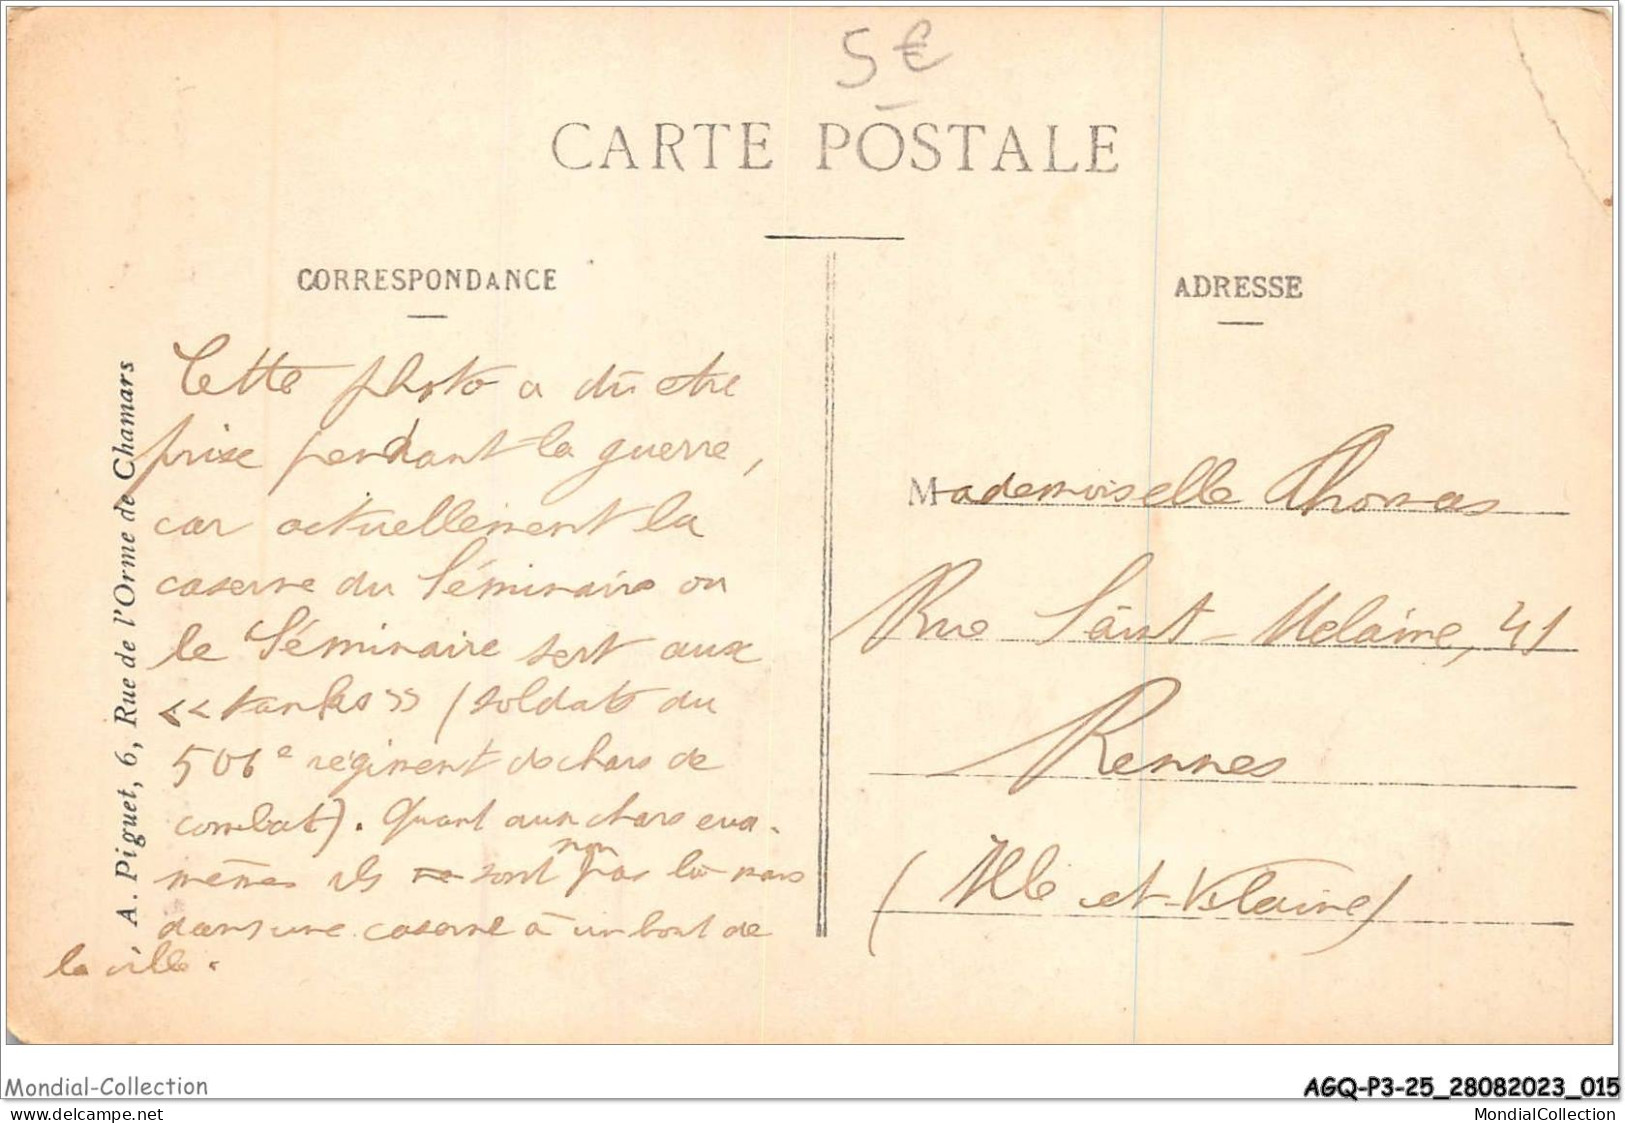 5 €
CARTE POSTALE
CORRESPONDANCE
ADRESSE
A. Piguet, 6, Rue de l'Orme de Chamars
Cette photo a dû être
prise pendant la guerre,
car actuellement la
caserne du Séminaire ou
le Séminaire sert aux
<<tanks>> (soldats du
506e régiment de chars de
combat). Quant aux chars eux-
mêmes ils sont non pas là mais
dans une caserne à un bout de
la ville.
Mademoiselle Thomas
Rue Saint-Melaine, 41
Rennes
(Ille et-Vilaine)
Mondial-Collection
AGQ-P3-25_28082023_015
Mondial-Collection.com
MondialCollection